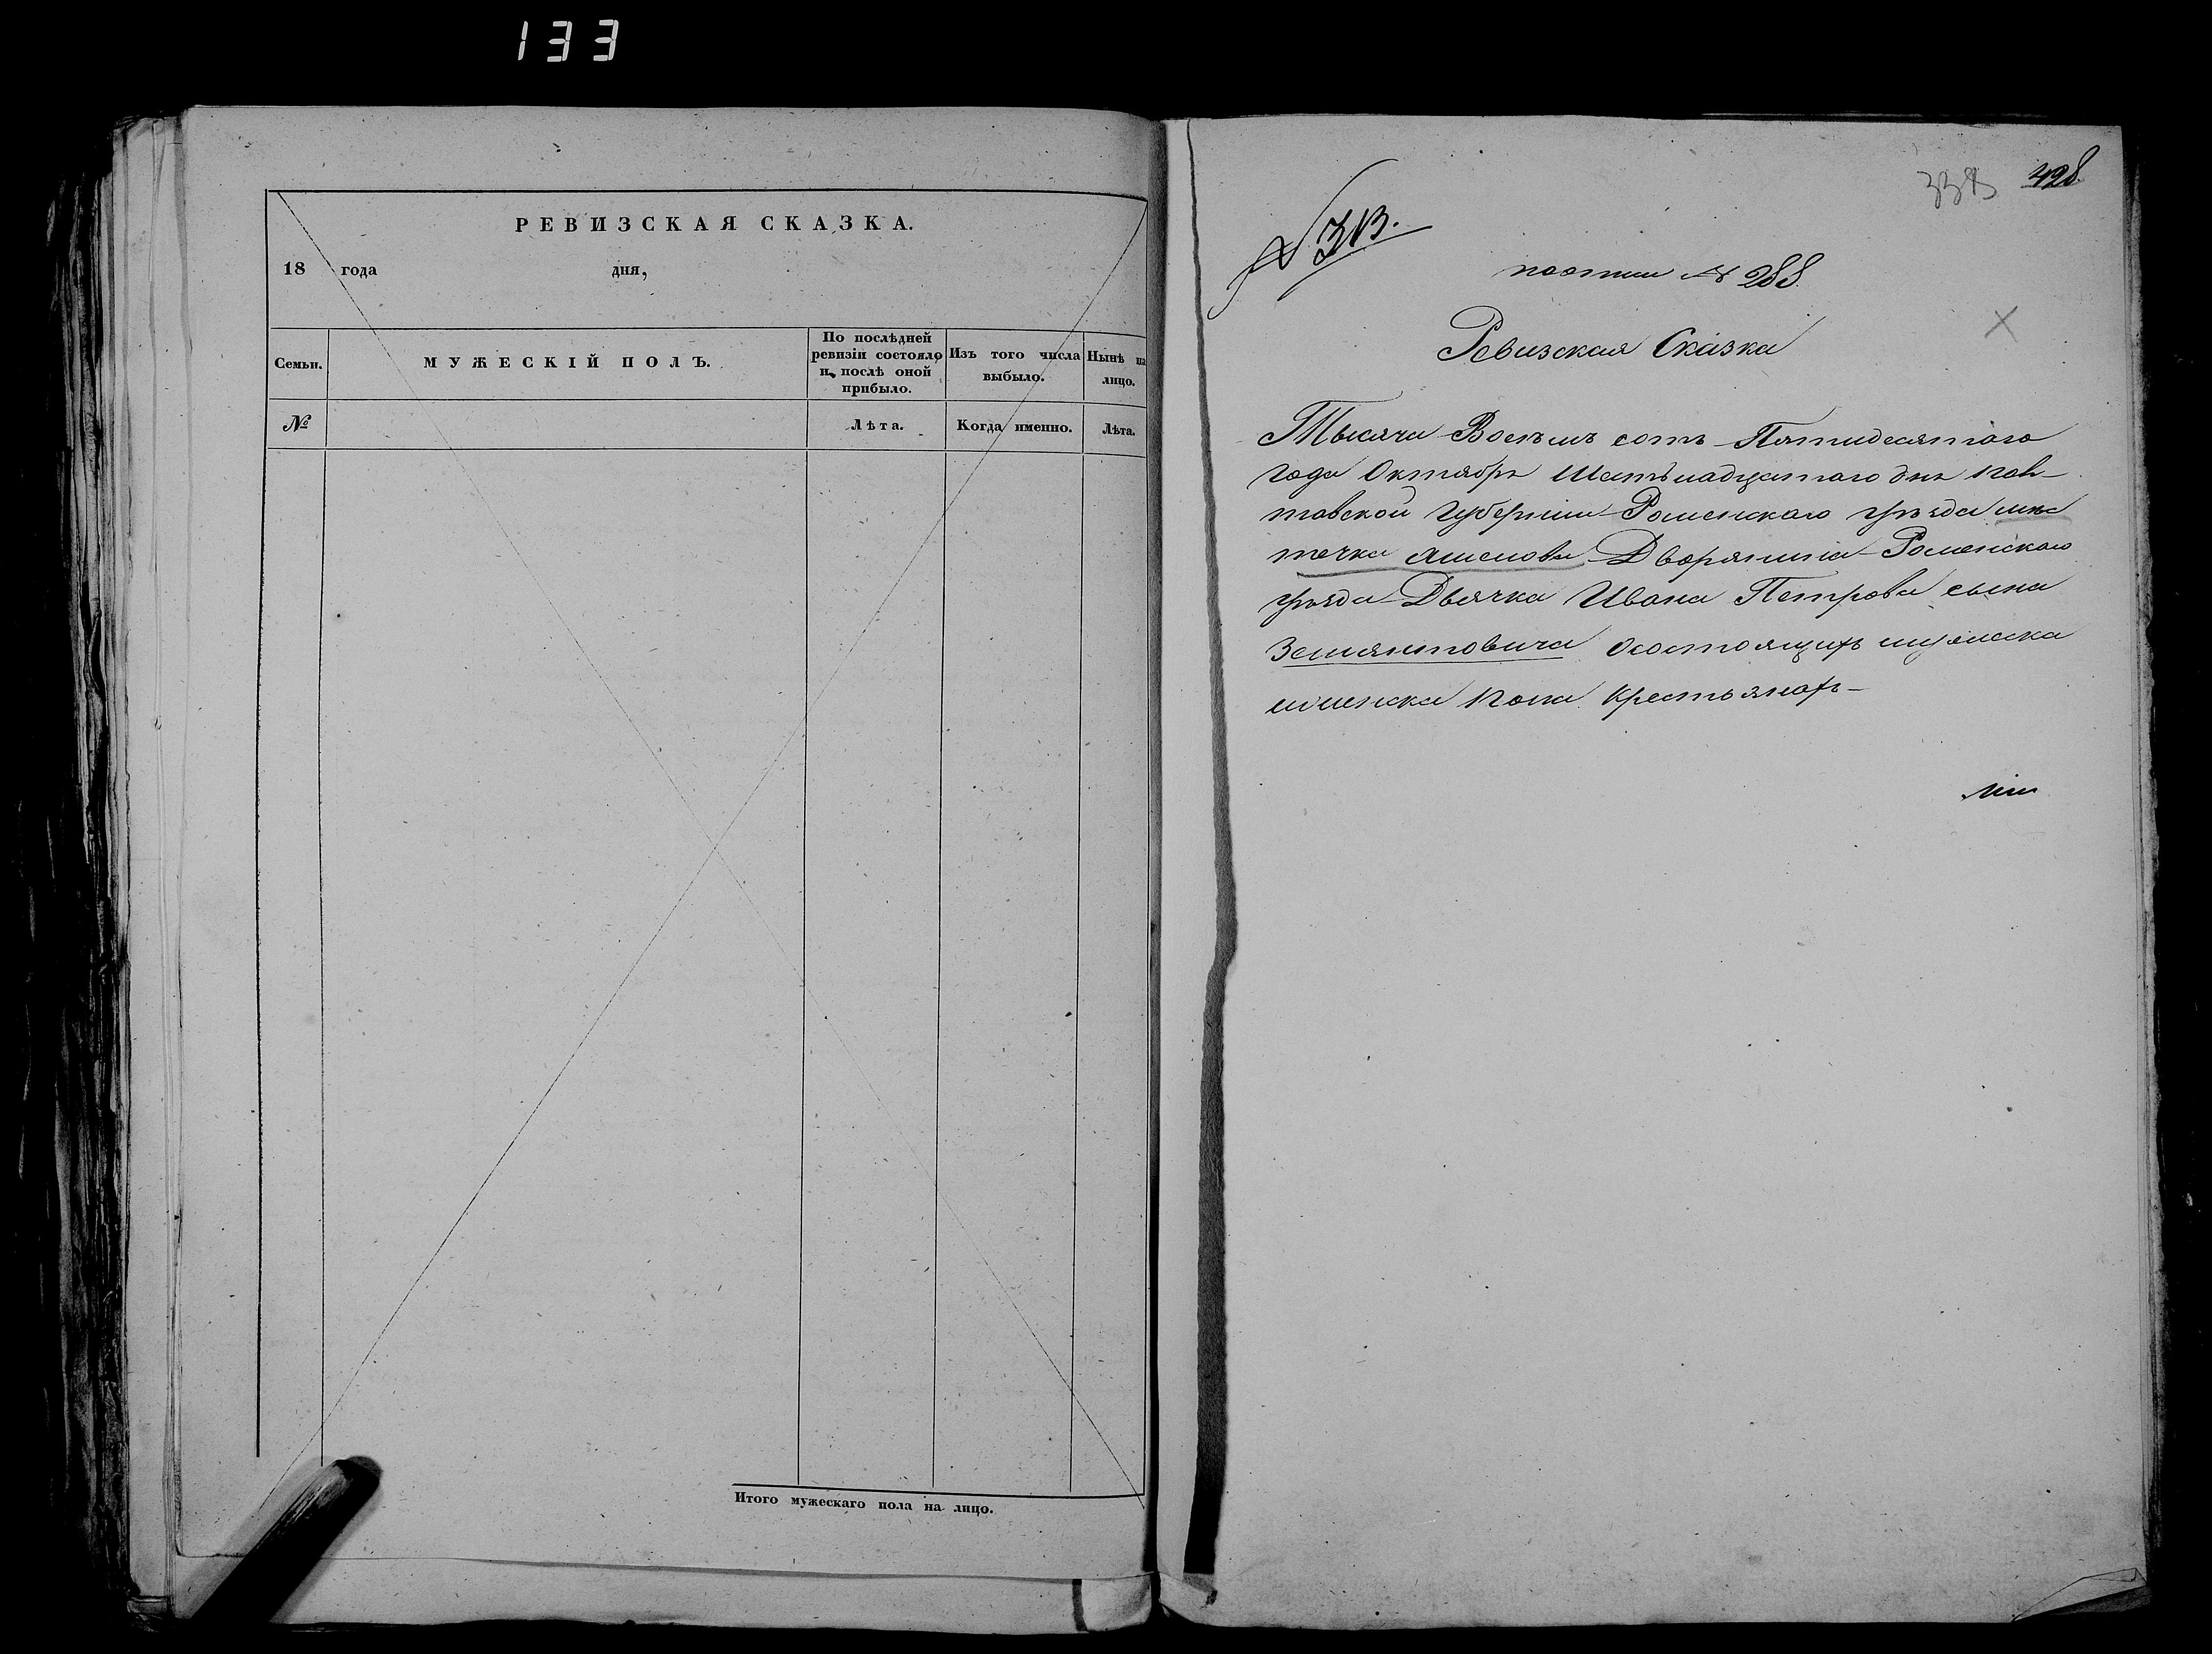 133
РЕВИЗСКАЯ СКАЗКА.
18 года дня,
Семьи.
МУЖЕСКІЙ ПОЛЪ.
По послѣдней ревизіи состояло и послѣ оной прибыло.
Изъ того числа выбыло.
Нынѣ на лицо.
№
Лѣта.
Когда именно.
Лѣта.
Итого мужескаго пола на лицо.
428
№ 313.
№ 288.
Ревизская Сказка
Тысяча Восемъ сотъ Пятидесятого
года Октября Шестьнадцатого дня Пол-
тавской Губерніи Роменского уѣзда мѣс
течка Дворянина Роменского
уѣзда Дьячка Ивана Петрова сына
Осостоящихъ мужеска
иженска пола крестьянахъ-